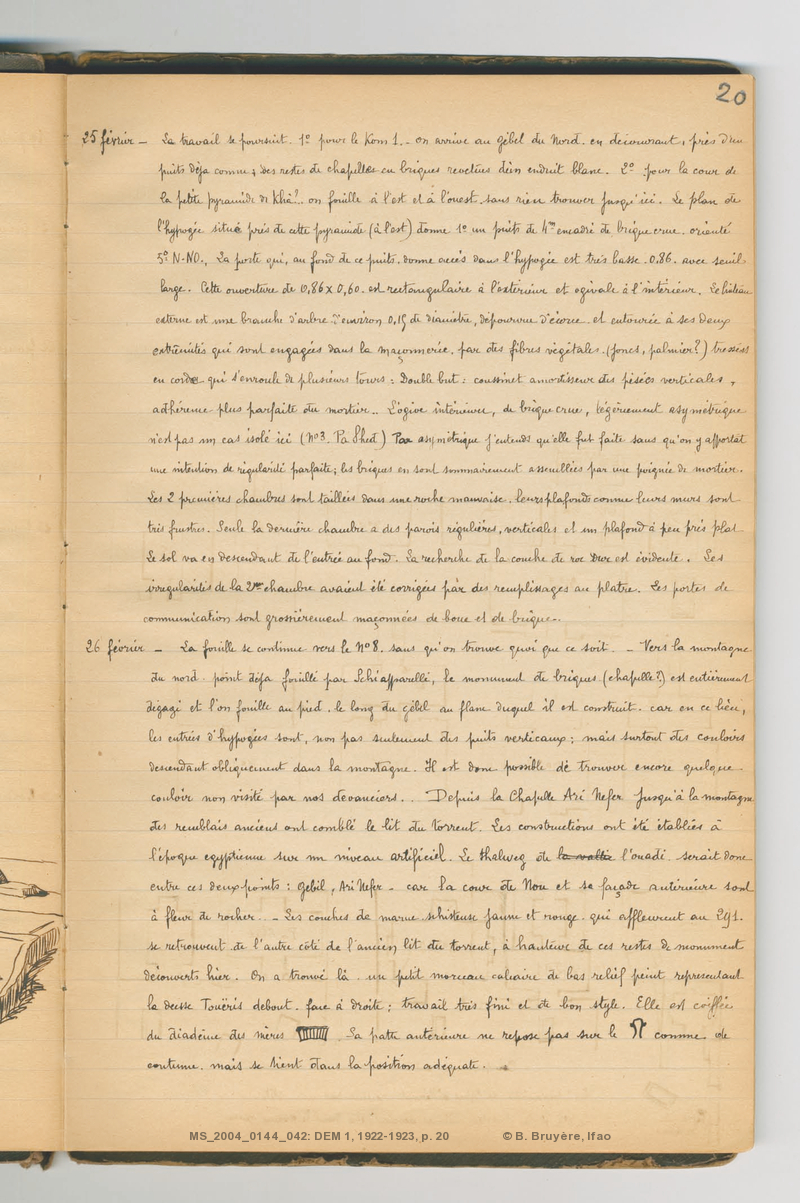 20
25 février — Le travail se poursuit. 1º pour le Kom 1. - on arrive au gébel du Nord. en découvrant, près d'un
puits déja connu, des restes de chapelles en briques revetues d'un enduit blanc. 2º pour la cour de
la petite pyramide de Khâ?. on fouille à l'est et à l'ouest. sans rien trouver jusqu'ici. Le plan de
l'hypogée situé près de cette pyramide (à l'est) donne 1º un puits de 4m encadré de brique crue. orienté
5º N-NO., La porte qui, au fond de ce puits. donne accès dans l'hypogée est très basse. 0.86. avec seuil
large. Cette ouverture de 0,86 x 0,60. est rectangulaire à l'exterieur et ogivale à l'intérieur. Le linteau
externe est une branche d'arbre d'environ 0,15 de diamètre, dépourvue d'écorce. et entourée à ses deux
extrémités qui sont engagées dans la maçonnerie. par des fibres végétales. (joncs, palmier?) tressées
en corde qui s'enroule de plusieurs tours : Double but : coussinet amortisseur des pesées verticales,
adhérence plus parfaite du mortier.. L'ogive intérieure, de brique crue, légèrement asymétrique
n'est pas un cas isolé ici (Nº3. Pa Shed) Par asymétrique j'entends qu'elle fut faite sans qu'on y apportât
une intention de régularité parfaite; les briques en sont sommairement assemblées par une poignée de mortier.
Les 2 premières chambres sont taillées dans une roche mauvaise. leurs plafonds comme leurs murs sont
très frustes. Seule la dernière chambre a des parois régulières, verticales et un plafond à peu près plat
Le sol va en descendant de l'entrée au fond. La recherche de la couche de roc dur est évidente. Les
irrégularités de la 2me chambre avaient été corrigées par des remplissages au platre. Les portes de
communication sont grossièrement maçonnées de boue et de brique..
26 février — La fouille se continue vers le Nº8. sans qu'on trouve quoi que ce soit. - Vers la montagne
du nord. point déja fouillé par Schiapparelli, le monument de briques (chapelle?) est entièrement
dégagé et l'on fouille au pied. le long du gébel au flanc duquel il est construit. car en ce lieu,
les entrées d'hypogées sont, non pas seulement des puits verticaux; mais surtout des couloirs
descendant obliquement dans la montagne. Il est donc possible de trouver encore quelque
couloir non visité par nos devanciers.. Depuis la Chapelle Ari Nefer jusqu'à la montagne
des remblais anciens ont comblé le lit du torrent. Les constructions ont été établies à
l'époque egyptienne sur un niveau artificiel. Le thalweg de la vallée l'ouadi. serait donc
entre ces deux points : Gebel, Ari Nefer - car la cour de Nou et sa façade antérieure sont
à fleur de rocher. - Les couches de marne schisteuse jaune et rouge qui affleurent au 291.
se retrouvent de l'autre côté de l'ancien lit du torrent, à hauteur de ces restes de monument
découverts hier. On a trouvé là un petit morceau calcaire de bas relief peint representant
la deesse Touëris debout. face à droite; travail très fini et de bon style. Elle est coiffée
du diadème des mères. La patte antérieure ne repose pas sur le comme de
coutume. mais se tient dans la position adéquate.
MS_2004_0144_042: DEM 1, 1922-1923, p. 20 © B. Bruyère, Ifao